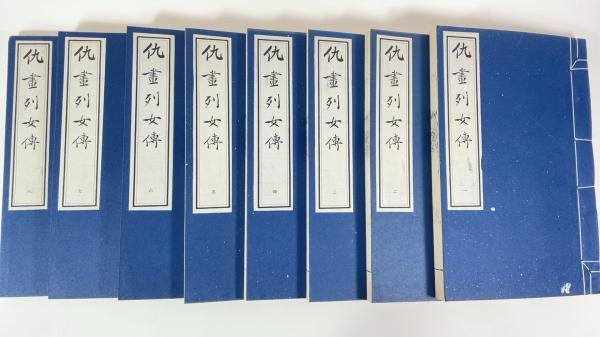 仇畫列女傳 一
仇畫列女傳 二
仇畫列女傳 三
仇畫列女傳 四
仇畫列女傳 五
仇畫列女傳 六
仇畫列女傳 七
仇畫列女傳 八